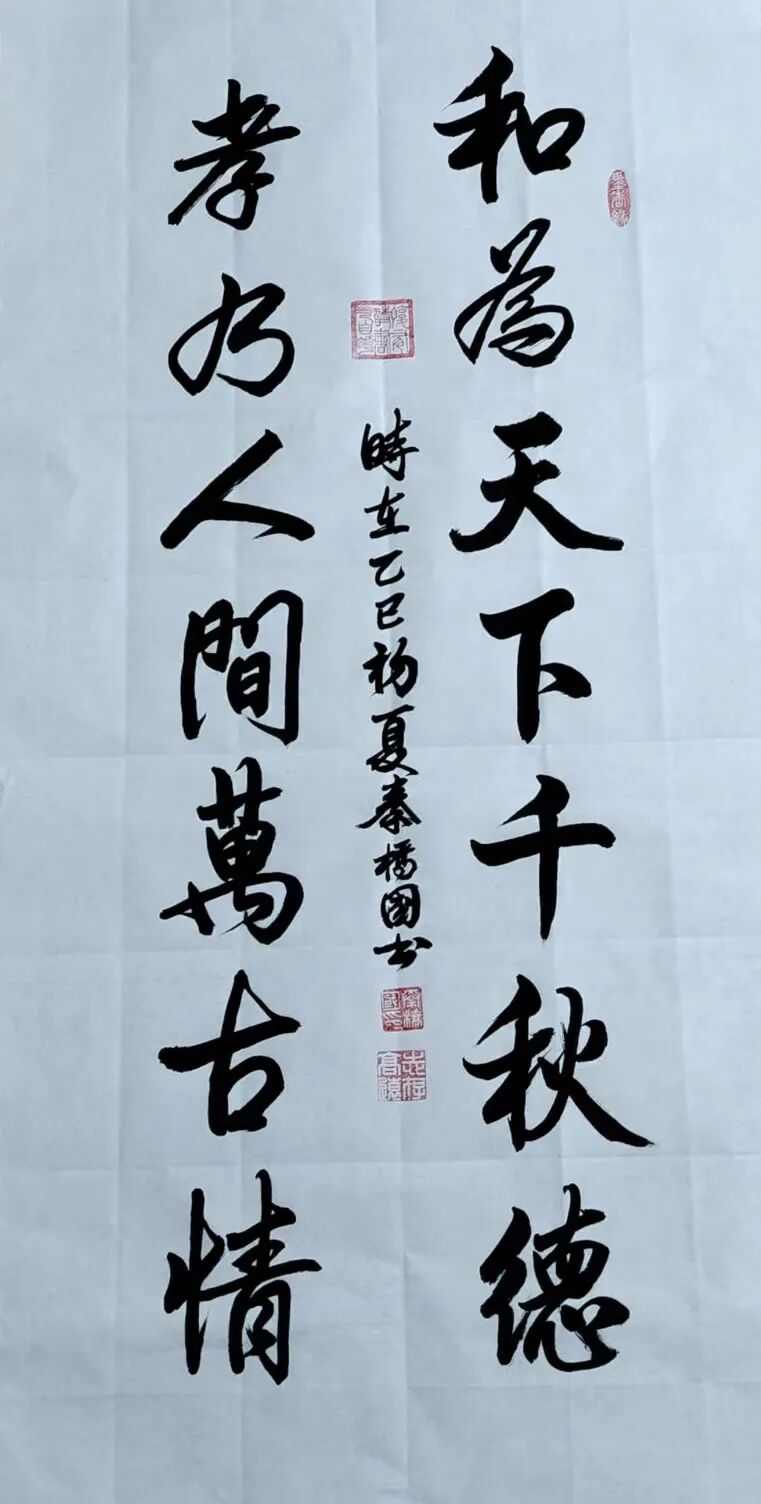 和為天下千秋德
孝乃人間萬古情
時在乙巳初夏秦橋國书
志存高遠